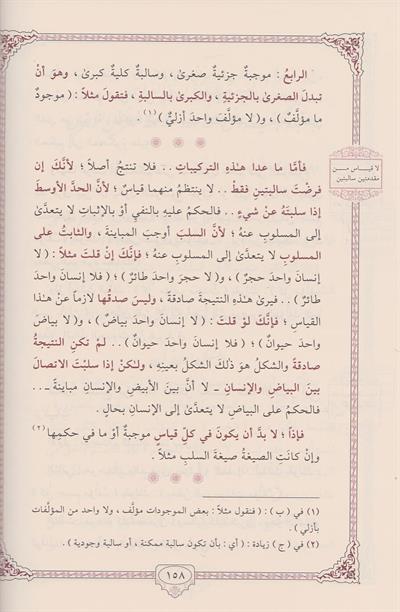 الرابعُ : موجبةٌ جزئيةٌ صغرىٰ ، وسالبةٌ كليةٌ كبرىٰ ، وهوَ أنْ
تبدلَ الصغرىٰ بالجزئيةِ ، والكبرىٰ بالسالبةِ ، فتقولَ مثلاً : ( موجودٌ
ما مؤلَّفٌ ) ، و( لا مؤلَّفَ واحدَ أزليٌّ ) (١) .
* * *
فأمَّا ما عدا هـٰذهِ التركيباتِ . . فلا تنتجُ أصلاً ؛ لأنَّكَ إن
فرضْتَ سالبتينِ فقطْ . . لا ينتظمُ منهما قياسٌ ؛ لأنَّ الحدَّ الأوسطَ
لا قياس مـــن مقدمتين سالبتين
إذا سلبتَهُ عنْ شيءٍ . . فالحكمُ عليهِ بالنفيِ أوْ بالإثباتِ لا يتعدَّىٰ
إلى المسلوبِ عنهُ ؛ لأنَّ السلبَ أوجبَ المباينةَ ، والثابتُ على
المسلوبِ لا يتعدَّىٰ إلى المسلوبِ عنهُ ؛ فإنَّكَ إنْ قلتَ مثلاً : ( لا
إنسانَ واحدَ حجرٌ ) ، و( لا حجرَ واحدَ طائرٌ ) ؛ ( فلا إنسانَ واحدَ
طائرٌ ) . . فيرىٰ هـٰذهِ النتيجةَ صادقةً ، وليسَ صدقُها لازماً عنْ هـٰذا
القياسِ ؛ فإنَّكَ لوْ قلتَ : ( لا إنسانَ واحدَ بياضٌ ) ، و( لا بياضَ
واحدَ حيوانٌ ) ؛ ( فلا إنسانَ واحدَ حيوانٌ ) . . لمْ تكنِ النتيجةُ
صادقةً والشكلُ هوَ ذٰلكَ الشكلُ بعينِهِ ، ولـٰكنْ إذا سلبْتَ الاتصالَ
بينَ البياضِ والإنسانِ ـ لا أنَّ بينَ الأبيضِ والإنسانِ مباينةً ـ . .
فالحكمُ على البياضِ لا يتعدَّىٰ إلى الإنسانِ بحالٍ .
فإذاً ؛ لا بدَّ أن يكونَ في كلِّ قياسٍ موجبةٌ أوْ ما في حكمِها (٢)
وإنْ كانَتِ الصيغةُ صيغةَ السلبِ مثلاً .
* * *
(١) في ( ب ) : ( فنقول مثلاً : بعض الموجودات مؤلَّف ، ولا واحد من المؤلَّفات
بأزلي ) .
(٢) في ( ج ) زيادة : ( أي : بأن تكون سالبة ممكنة ، أو سالبة وجودية ) .
١٥٨